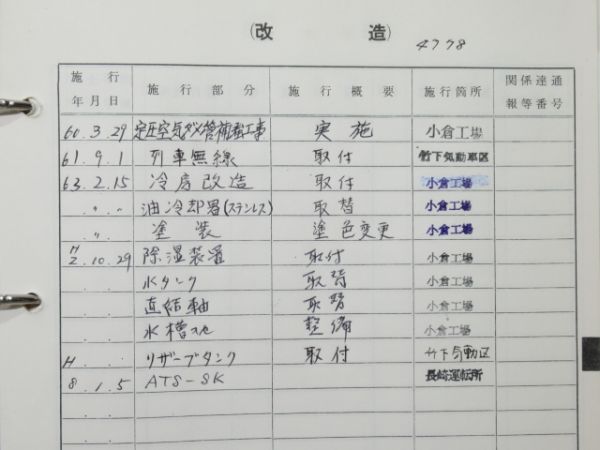 (改 造)
4778
施行年月日 施行部分 施行概要 施行箇所 関係達通報等番号
60.3.29 定圧空気ダメ管補強工事 実施 小倉工場
61.9.1 列車無線 取付 竹下気動車区
63.2.15 冷房改造 取付 小倉工場
〃.〃. 油冷却器(ステンレス) 取替 小倉工場
〃. 塗装 塗色変更 小倉工場
H2.10.29 除湿装置 取付 小倉工場
水タンク 取替 小倉工場
直結軸 取替 小倉工場
水槽 整備 小倉工場
H リザーブタンク 取付 竹下気動区
8.1.5 ATS-SK 長崎運転所